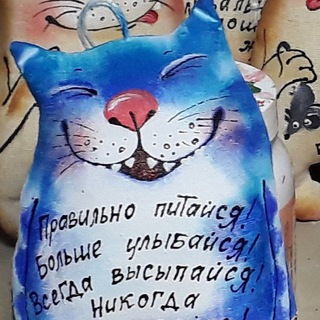 Правильно питайся!
Больше улыбайся!
Всегда высыпайся!
Никогда